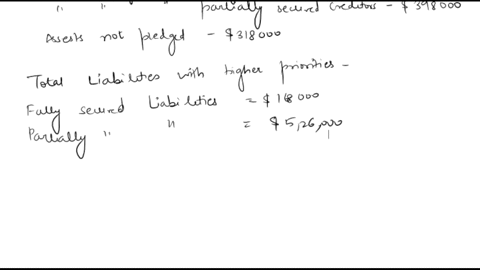 " " " partially secured creditors - $398000
Assests not pledged - $318000
Total Liabilities with higher priorities -
Fully secured Liabilities = $168000
Partially " " = $5,26,000